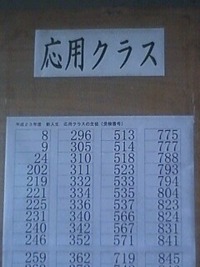 応用クラス
8 296 513 775
9 305 514 777
24 310 518 788
202 311 523 793
219 332 533 794
221 334 535 804
225 336 537 823
231 340 566 824
240 342 567 831
246 352 571 841
259 362 719 845